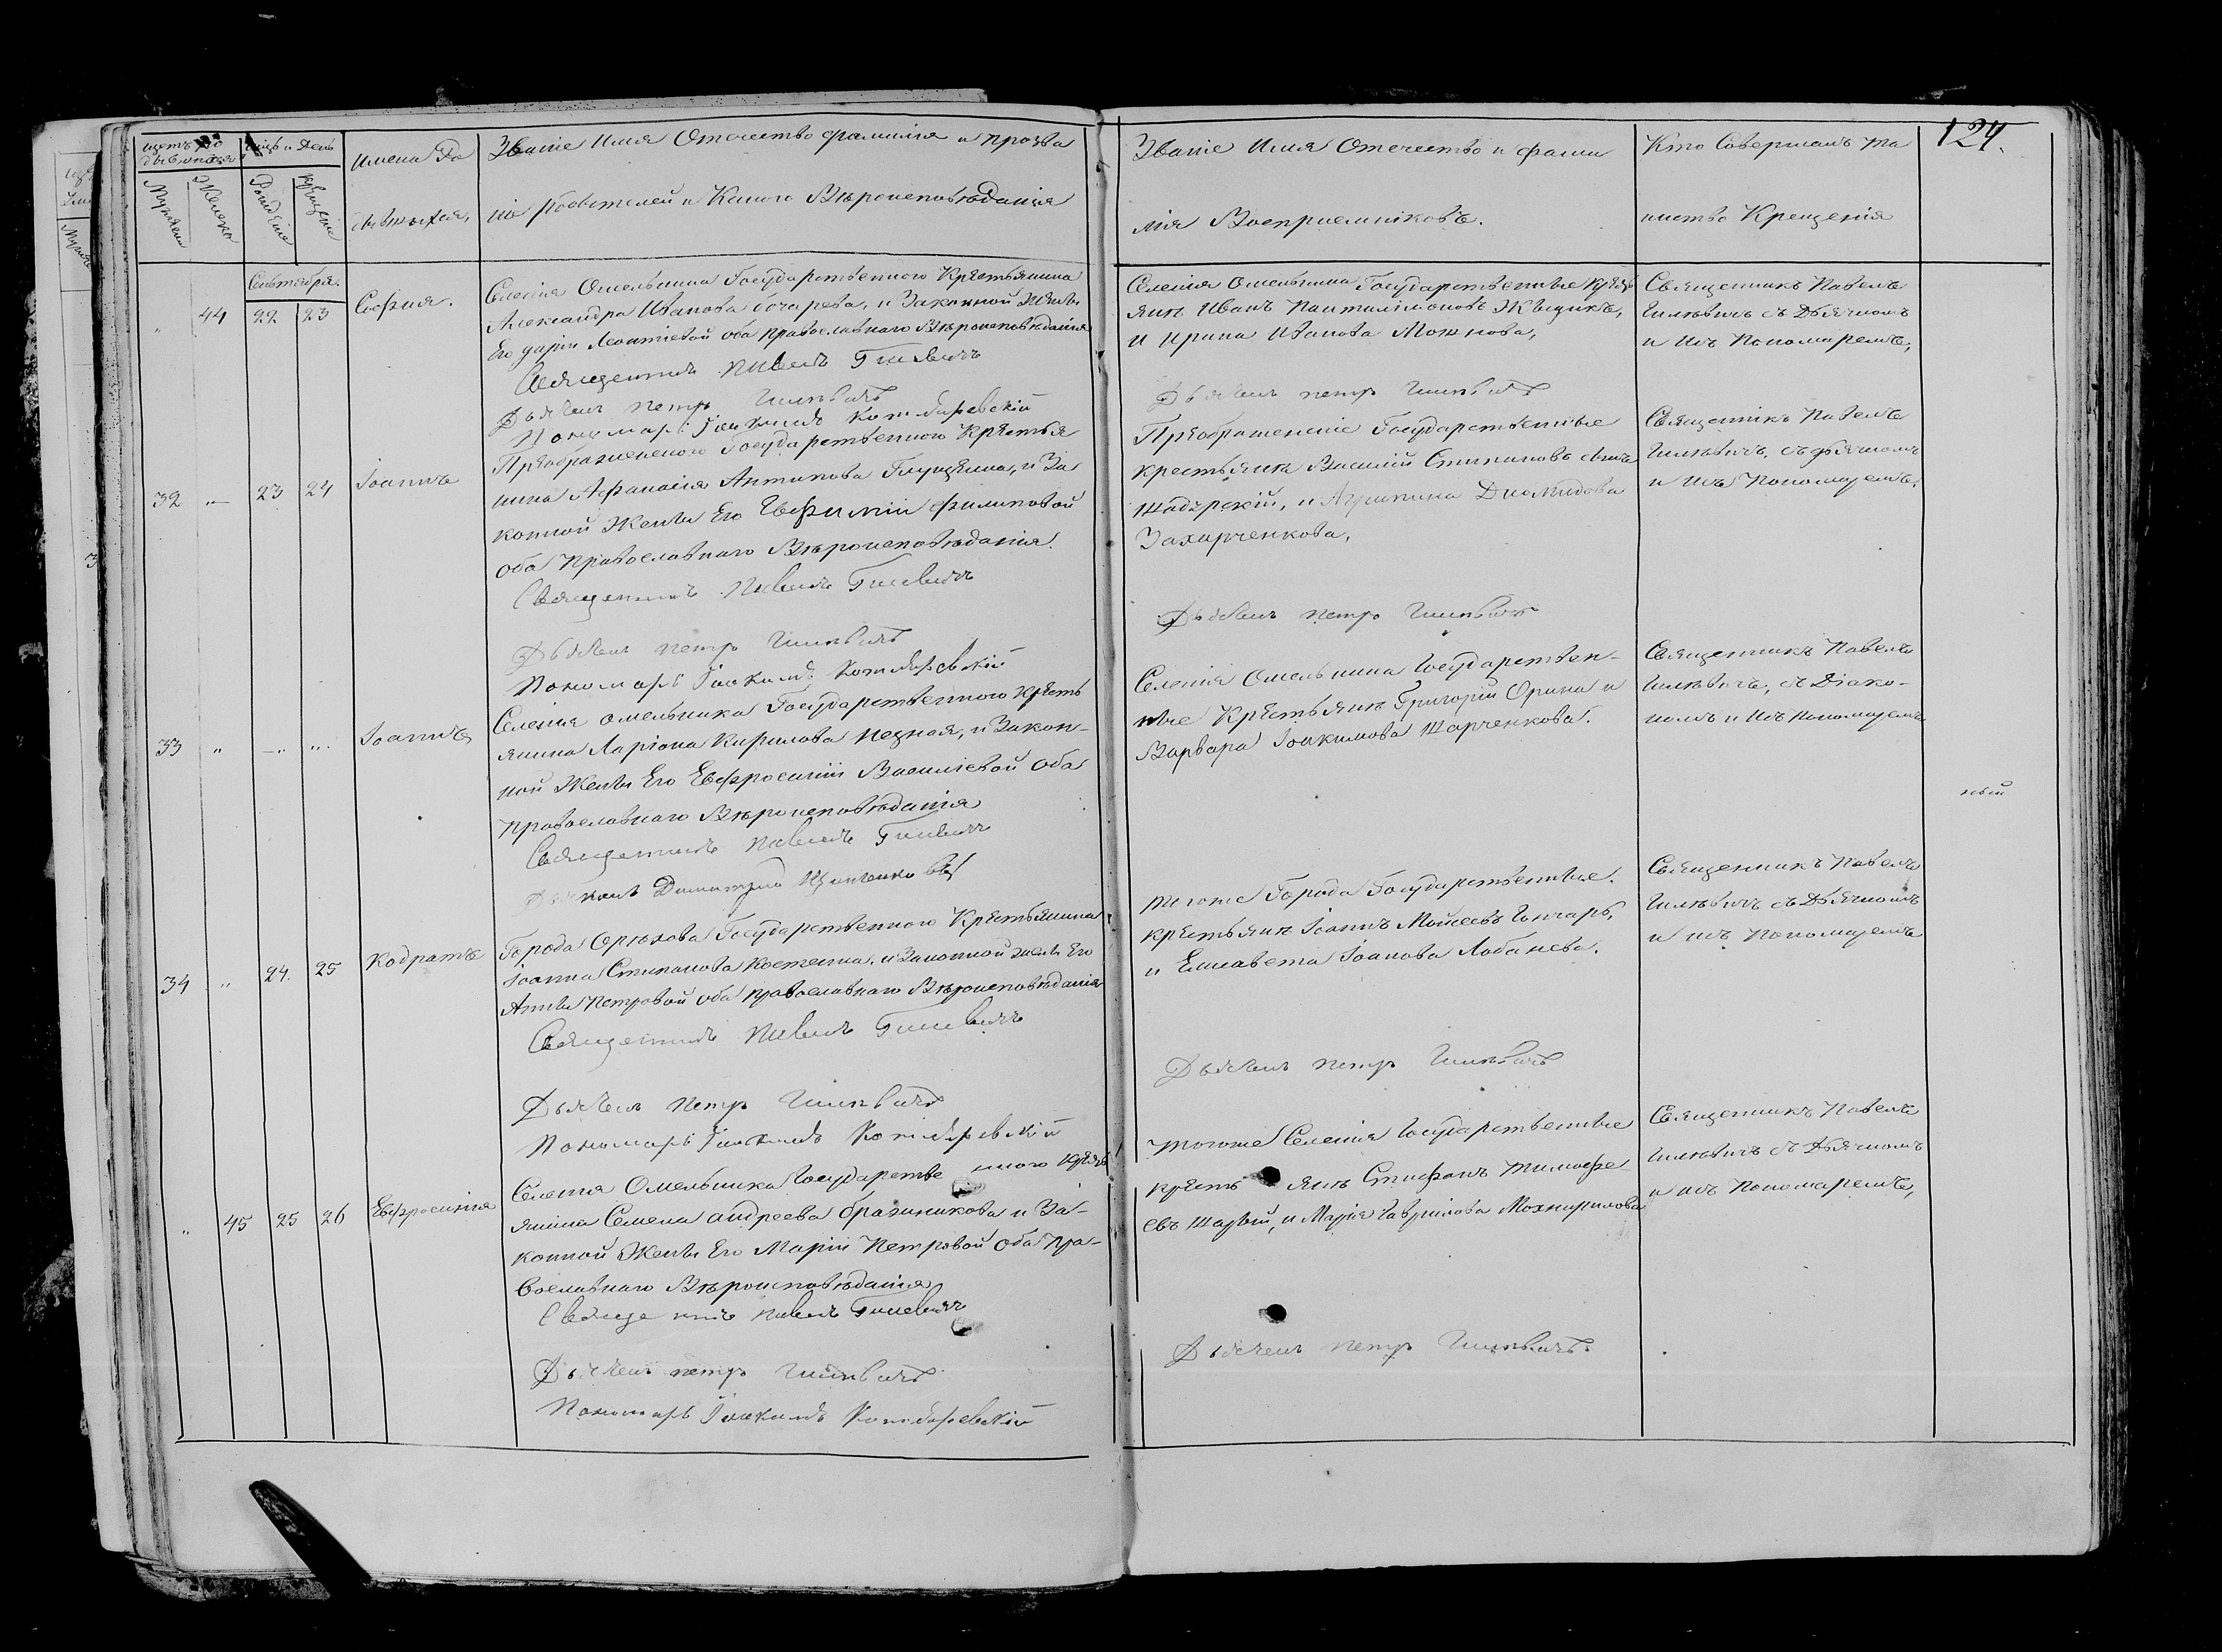 124.
щетъ Ро
дывшихся
мцъ и День
Имена Ро
дывшихся,
Званіе Имя Отечество фамилія и прозва
ніе Родителей и Какого Вѣроисповѣданія
Мужеска
Женска
Рождѣнія
Крещенія
Званіе Имя Отечество и фами
лія Воспріемниковъ.
Кто Совершалъ та
инство Крещенія
Сентября.
„ 44 22 23
София.
Селенія Омельника Государственного Крѣстьянина
Александра Иванова бочарева, и Законной Жены
Его дарии Леонтіевой оба православнаго Вѣроисповѣданія
Священникъ Павелъ Гилевичъ
Дьячекъ петръ Гилевичъ
Пономарь Іоакимъ Котляревскій
Селенія Омельника Государственные крѣсть
яне Иванъ Пантилімоновъ
и Ирина Иванова
Дьячекъ петръ Гилевичъ
Священникъ Павелъ
Гилевичъ съ Дьячкомъ
и Пономаремъ,
32 „ 23 24
Іоаннъ
Преображенского Государственного Крѣстья
нина Афанасія Антипова и За
конной Жены Его Евфиміи филиповой
оба Православнаго Вѣроисповѣданія.
Священникъ Павелъ Гилевичъ
Дьячекъ петръ Гилевичъ
Пономарь Іоакимъ Котляревскій
Преображенскіе Государственные
крестьяне Василий Стипановъ
и Агрипина Диомидова
Захарченкова,
Дьячекъ петръ Гилевичъ
Священникъ Павелъ
Гилевичъ, съ дьячкомъ
и Пономаремъ,
33 „ „ „
Іоаннъ
Селенія омельника Государственного крѣсть
янина Ларіона Кирилова и Закон-
ной Жены Его Евфросиніи Василіевой Оба
православнаго Вѣроисповѣданія
Священникъ Павелъ Гилевичъ
Димитрій
Селенія Омельника Государствен-
ные Крѣстьяне Григорій Орина и
Варвара Іоакимова
Священникъ Павелъ
Гилевичъ, съ Діако-
номъ и Пономаремъ
ный
34 „ 24. 25
Кодратъ
Города Орѣхова Государственного Крѣстьянина
Іоанна Стипанова и Законной жены Его
Анны Петровой оба православнаго Вѣроисповѣданія
Священникъ Павелъ Гилевичъ
Дьячекъ петръ Гилевичъ
Пономарь Іоакимъ Котляревскій
тогоже Города Государственные
крѣстьяне Іоаннъ Моисеевъ Гончаръ,
и Елисавета Іоанова
Дьячекъ петръ Гилевичъ
Священникъ Павелъ
Гилевичъ съ Дьячкомъ
и Пономаремъ
„ 45 25 26
Евфросинія
Селенія Омельника Государстве нного крѣсть
янина Семена андреева бражникова и За-
конной Жены Его Маріи Петровой Оба пра-
вославнаго Вѣроисповѣданія
Священникъ Павелъ Гилевичъ
Дьячекъ петръ Гилевичъ
Пономарь Іоакимъ Котляревскій
тогоже Селенія Государственные
крѣсть яне Стифанъ тимофе-
евъ и Марія Гаврилова
Дьячекъ петръ Гилевичъ.
Священникъ Павелъ
Гилевичъ съ Дьячкомъ
и Пономаремъ,